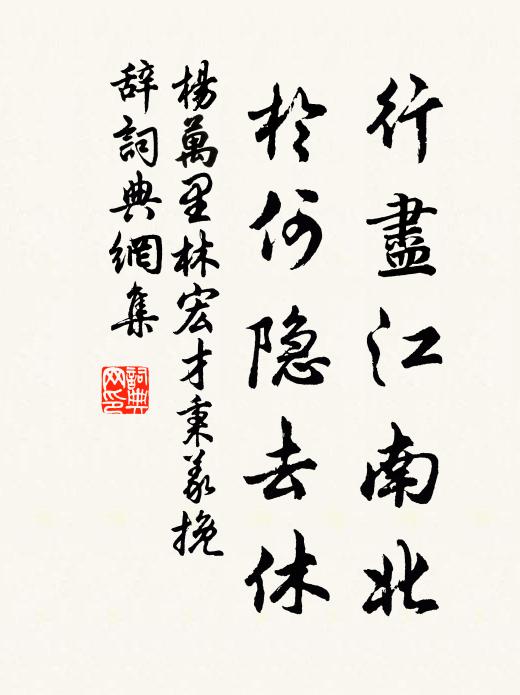 行盡江南北
於何隐去休
楊萬里林宏才秉義挽
辞詞典網集
詞典网印